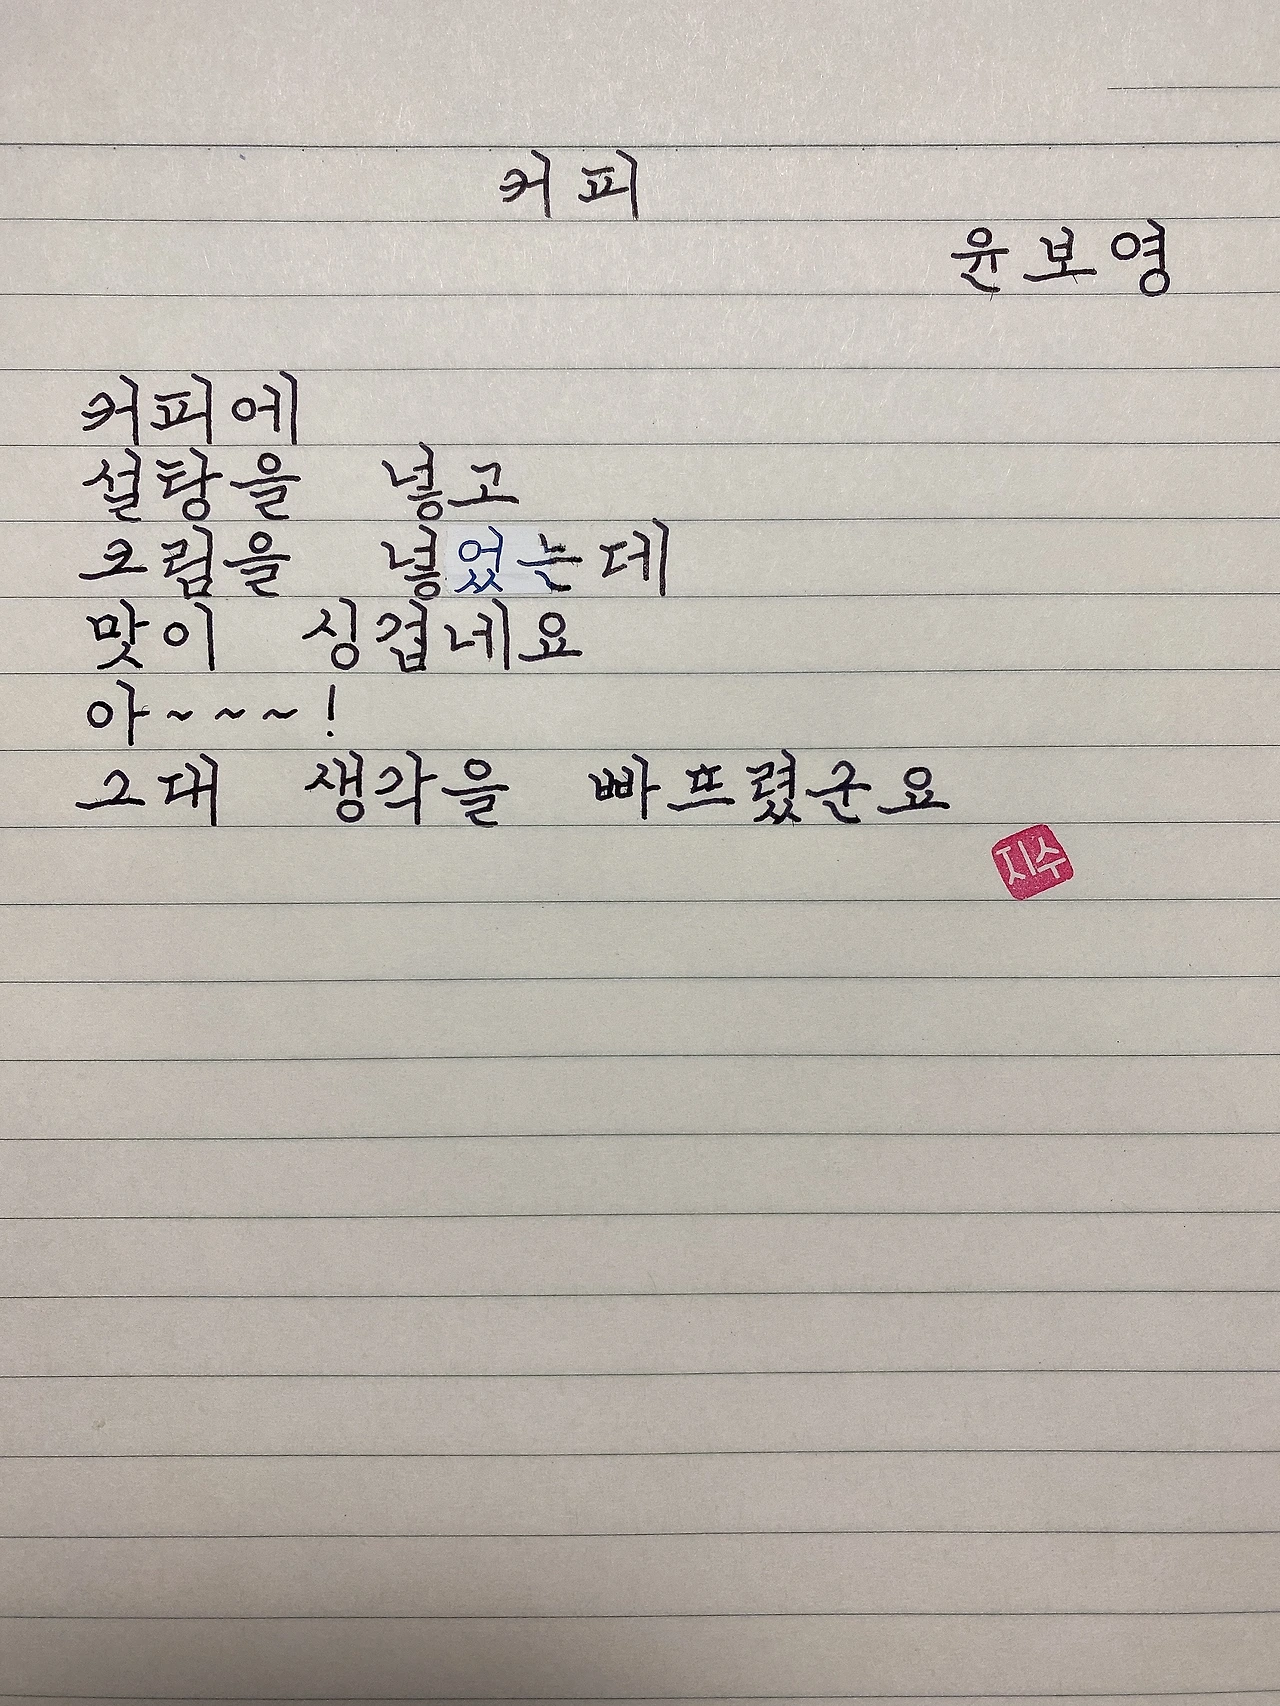 커피
윤보영
커피에
설탕을 넣고
크림을 넣었는데
맛이 싱겁네요
아~~~!
그대 생각을 빠뜨렸군요
지수